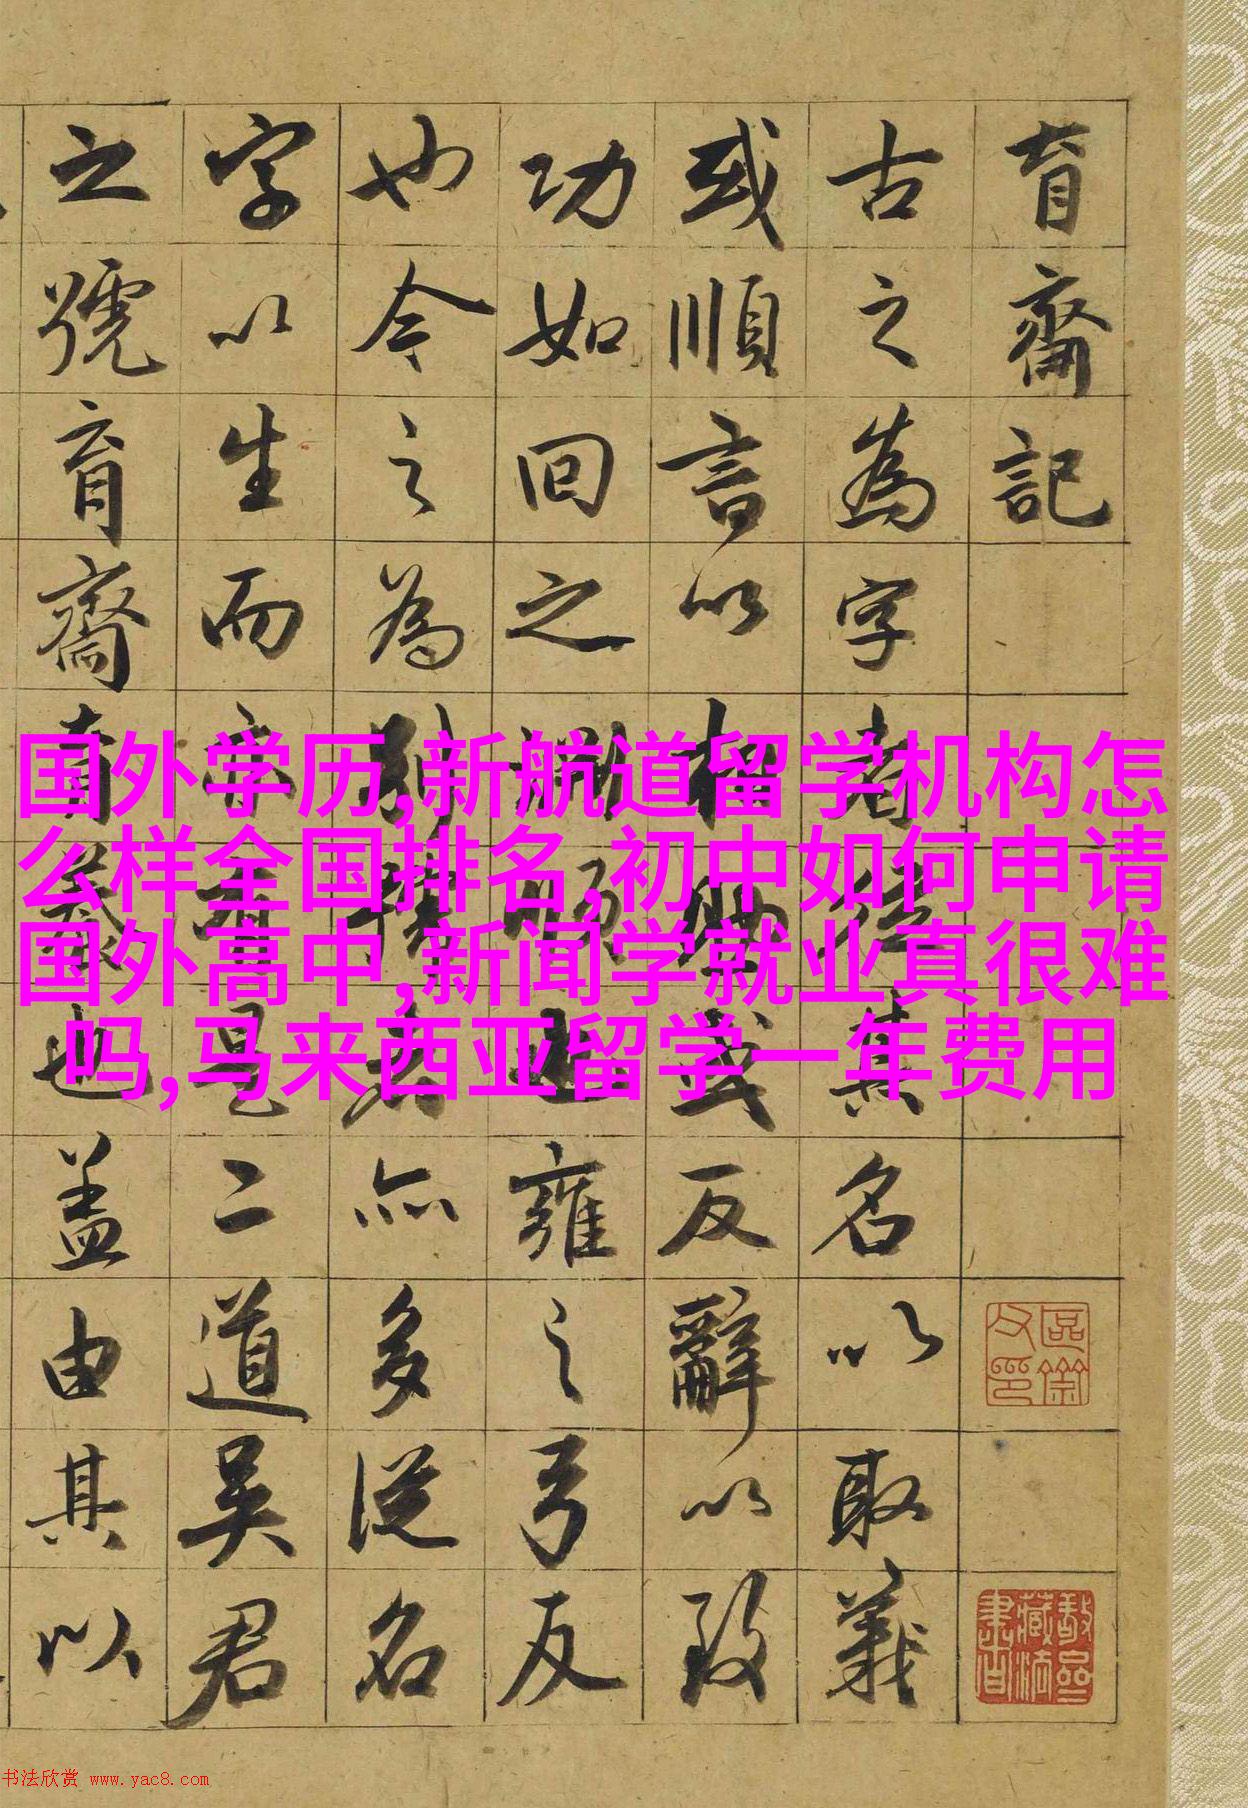 育齋記
古之為字者從其名以取義
或順言以相或反辭以致
功如回之淵順也雍之弓反
也今之為別號者亦多從名
字以生而亦是二道吳君
之號育齋育也蓋由其以
国外学历,新航道留学机构怎
么样全国排名,初中如何申请
国外高中,新闻学就业真很难
吗,马来西亚留学一年费用
书法欣赏 www.yac8.com